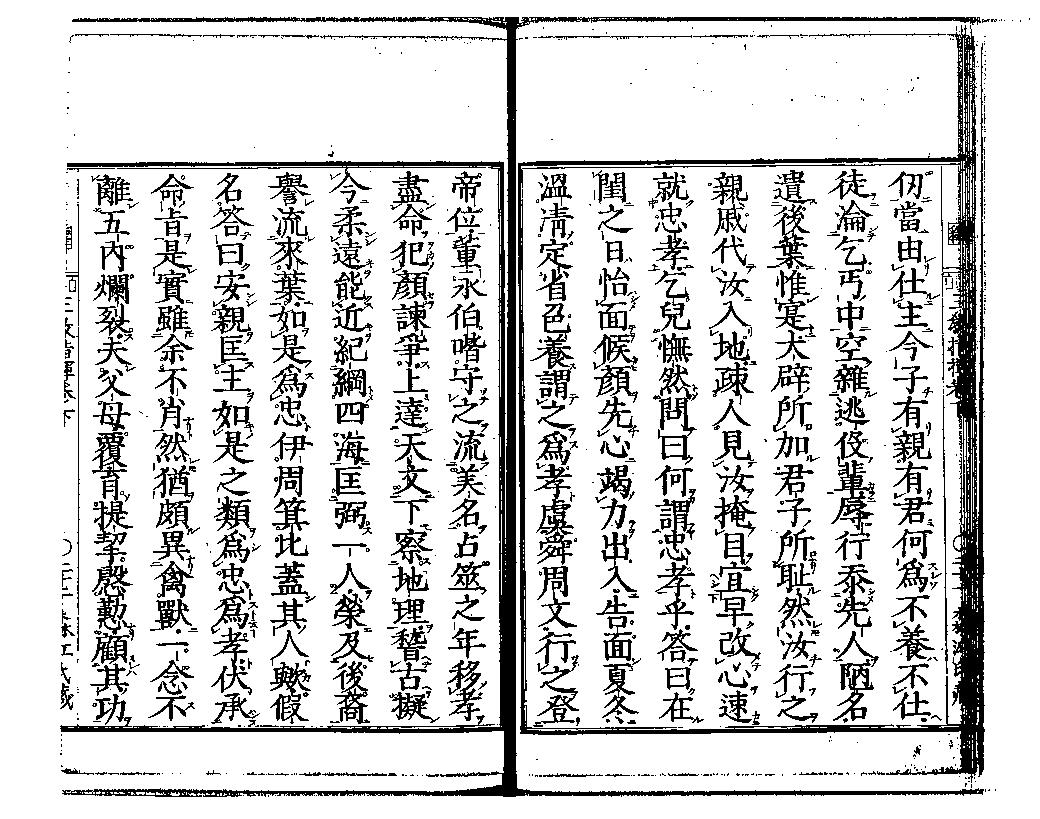 仞當由仕主今子有親有君何爲不養不仕
徒淪乞丐中空雜逃伇輩辱行忝先人陋名
遺後葉惟寔大辟所加君子所恥然汝行之
親戚代汝入地疎人見汝掩目宜早改心速
就忠孝乞兒憮然問曰何謂忠孝乎答曰在
閨之日怡面候顔先心竭力出入告面夏冬
溫凊定省色養謂之爲孝虞舜周文行之登
帝位董永伯喈守之流美名占筮之年移孝
盡命犯顔諫爭上達天文下察地理稽古擬
今柔遠能近紀綱四海匡弼一人榮及後裔
譽流來葉如是爲忠伊周箕比蓋其人歟假
名答曰安親匡主如是之類爲忠爲孝伏承
命旨是實雖余不肖然猶頗異禽獸一念不
離五內爛裂夫父母覆育提挈慇懃顧其功